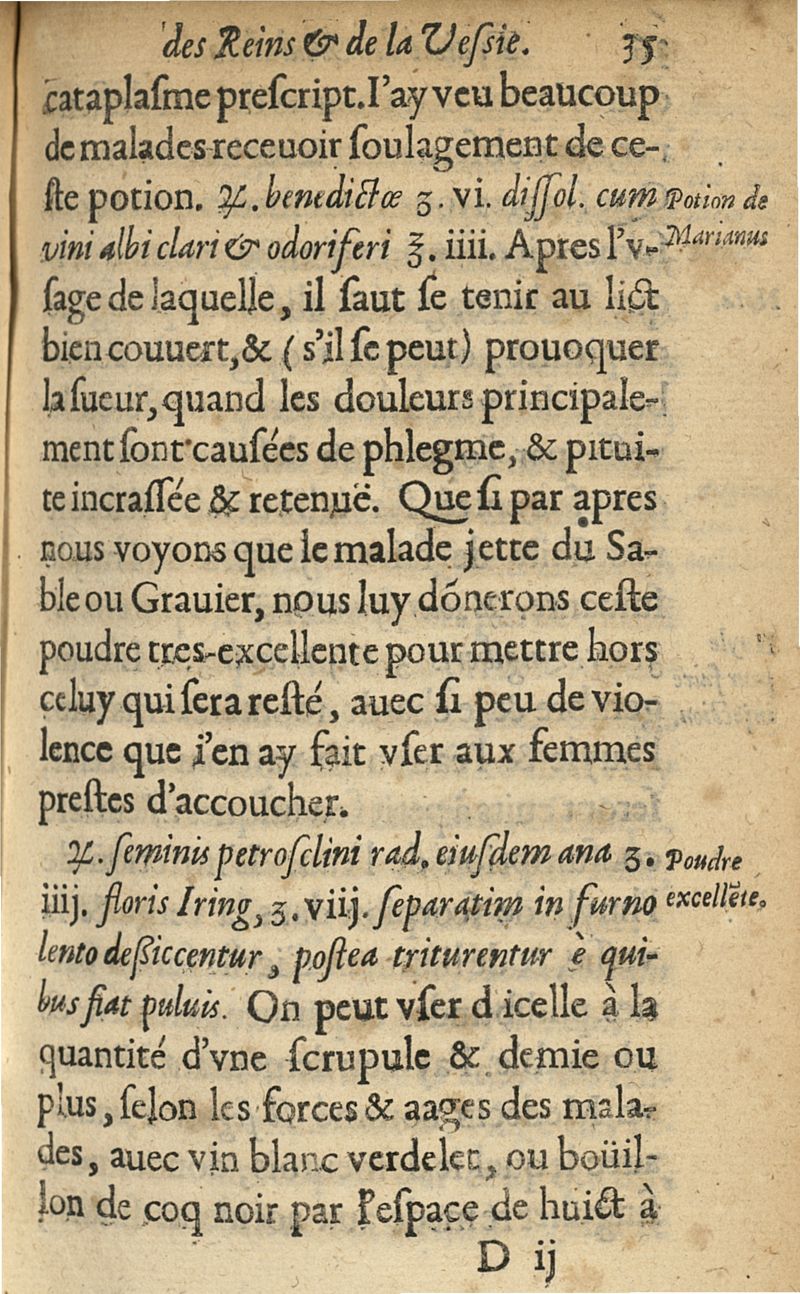 des Reins & de la Veſsie. 35
cataplaſme preſcript. I'ay veu beaucoup
de malades receuoir ſoulagement de ce-
ſte potion. ℞. benedictæ ʒ. vi. diſſol. cum
Potion de
vini albi clari & odoriferi ℥. iiii. Apres l'v-
Marianus
ſage de laquelle, il faut ſe tenir au lict
bien couuert, & (s'il ſe peut) prouoquer
la ſueur, quand les douleurs principale-
ment ſont cauſées de phlegme, & pitui-
te incraſſée & retenuë. Que ſi par apres
nous voyons que le malade jette du Sa-
ble ou Grauier, nous luy dōnerons ceſte
poudre tres-excellente pour mettre hors
celuy qui ſera reſté, auec ſi peu de vio-
lence que i'en ay fait vſer aux femmes
preſtes d'accoucher.
℞. ſeminis petroſelini rad. eiuſdem ana ʒ.
Poudre
iiij. floris Iring, ʒ. viij. ſeparatim in furno
excellēte.
lento deſsiccentur, poſtea triturentur è qui-
bus fiat puluis. On peut vſer d icelle à la
quantité d'vne ſcrupule & demie ou
plus, ſelon les forces & aages des mala-
des, auec vin blanc verdelet, ou boüil-
lon de coq noir par l'eſpace de huict à
D ij